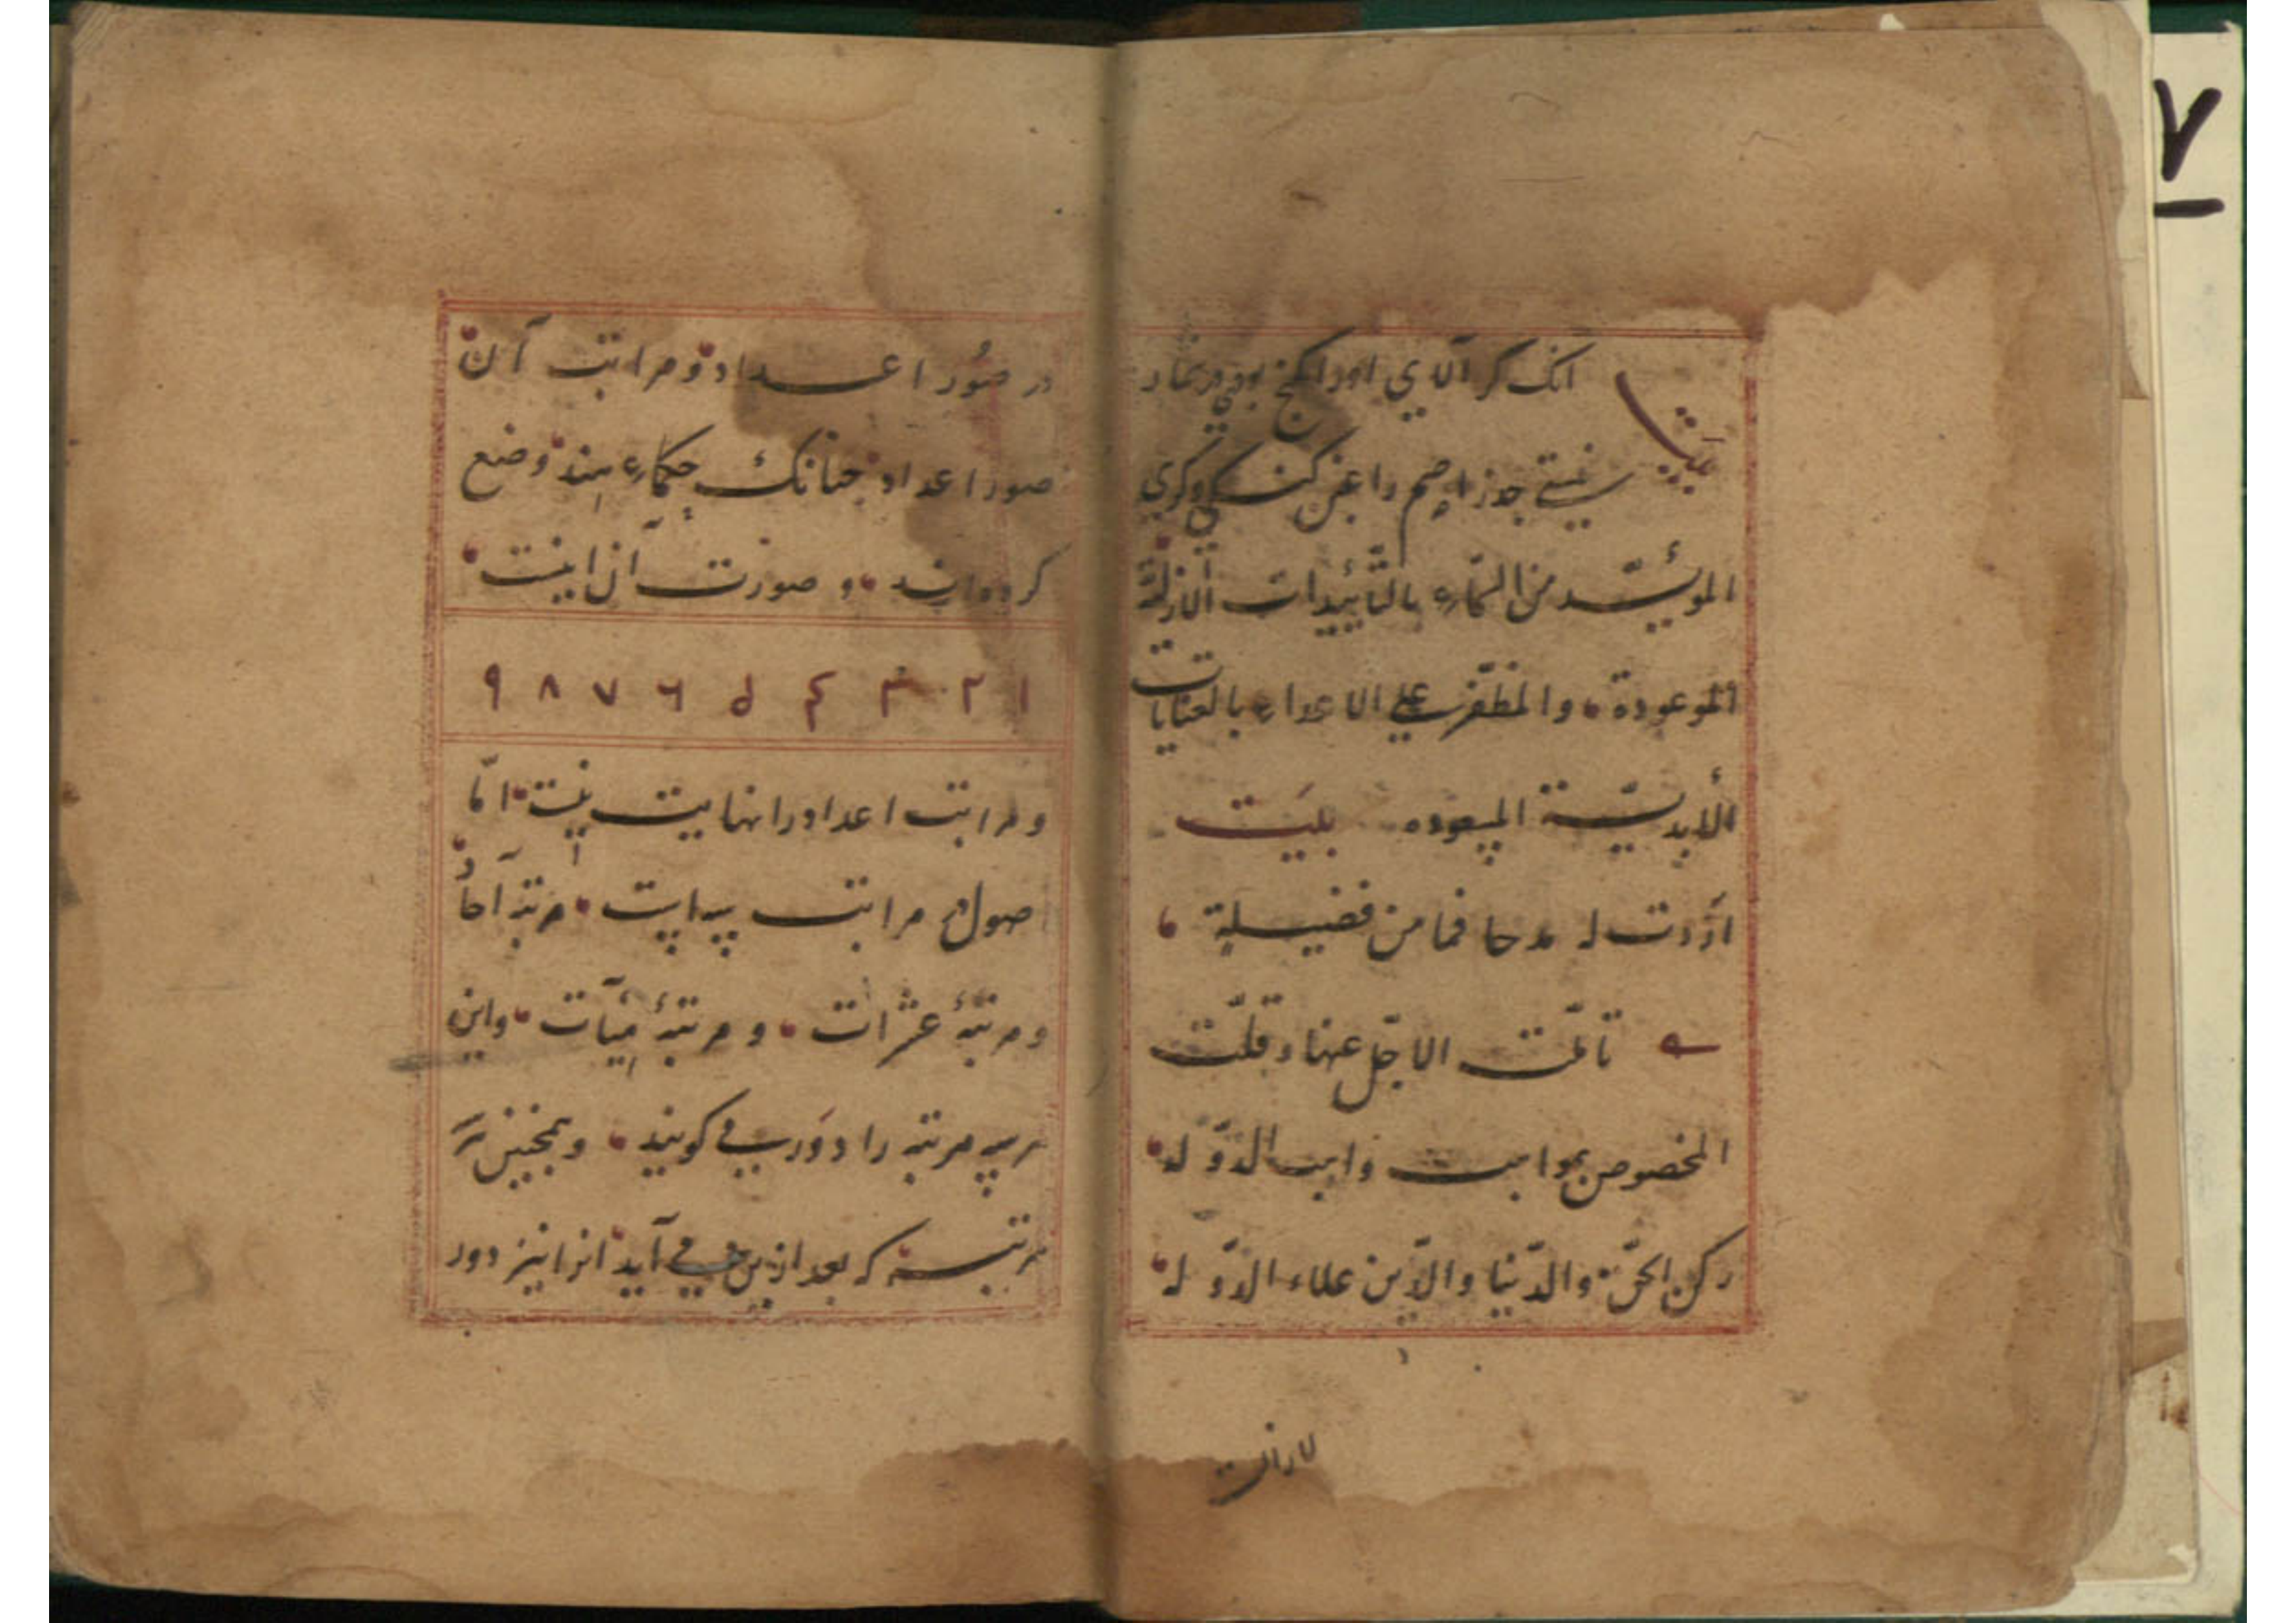 ۷
انک کر آلای اورا کنج بودی در شمار
نیستی جذر اصم را عیب کنکی و کری
المویّد من السّماء بالتّأییدات الأزلیّة
الموعودة والمظفّر علی الاعداء بالعنایات
الأبدیّة المسعوده بیت
اردت له مدحا فما من فضیلة
تأمّلت الا جلّ عنها وقلّت
المخصوص بمواهب واهب الدّوله
رکن الحقّ والدّنیا والدّین علاء الدّوله
در صُور اعداد و مراتب آن
صور اعداد چنانک حکماء هند وضع
کرده‌اند و صورت آن اینست
۱ ۲ ۳ ۴ ۵ ۶ ۷ ۸ ۹
و مراتب اعداد را نهایت نیست امّا
اصول مراتب سه است مرتبه آحاد
و مرتبهٔ عشرات و مرتبهٔ مِیآت و این
هر سه مرتبه را دَور می گویند و همچنین هر
مرتبه که بعد ازین می آید انرا نیز دور